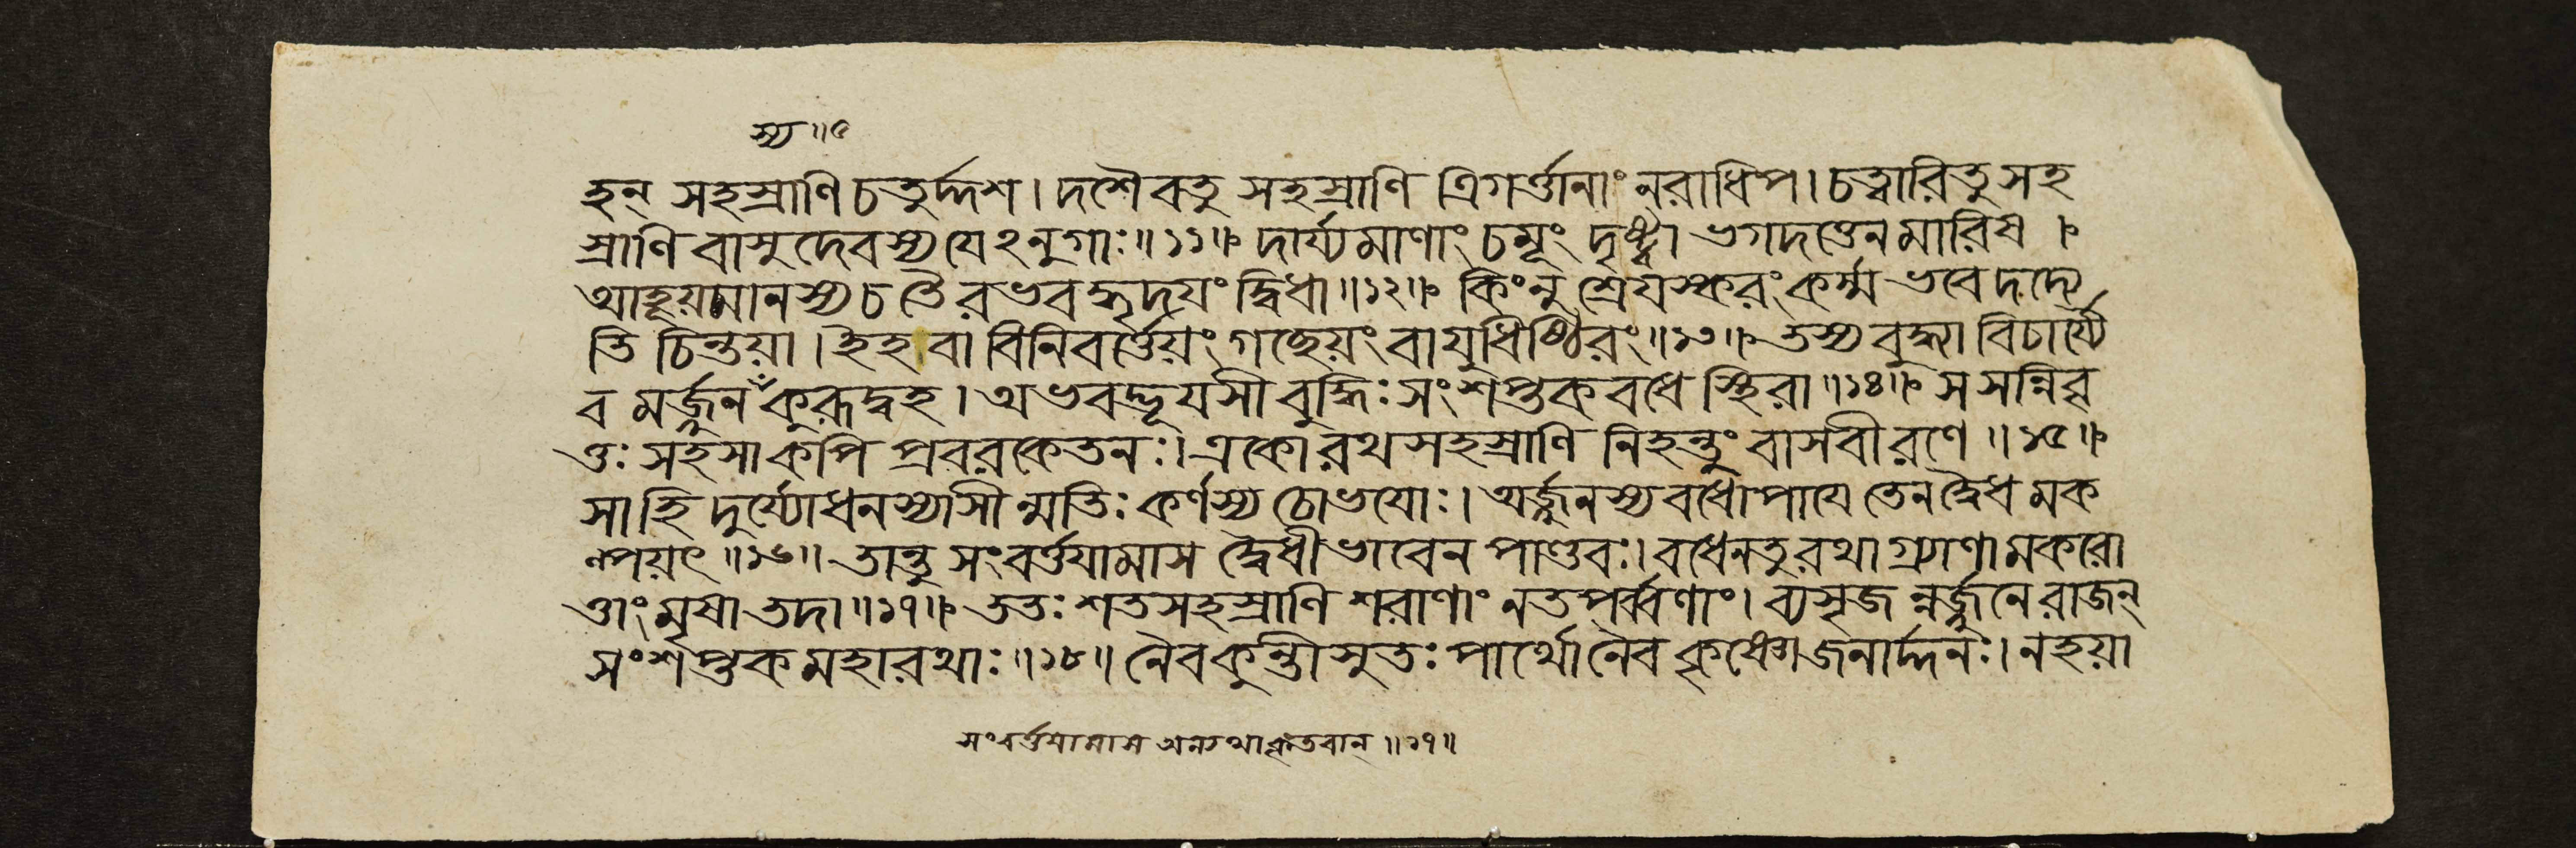 স্য ॥৫
হন্ সহস্রাণি চতুর্দ্দশ । দশৈবতু সহস্রাণি ত্রিগর্ত্তানাং নরাধিপ । চত্বারিতু সহ
স্রাণি বাসুদেবস্য যেঽনুগাঃ ॥ ১১ ॥ দার্য্যমাণাং চমূং দৃষ্ট্বা ভগদত্তেন মারিষ ।
আহূয়মানস্য চ তৈরভবদ্ধৃদয়ং দ্বিধা ॥ ১২ ॥ কিংনু শ্রেযস্করং কর্ম্ম ভবেদদ্যে
তি চিন্তয়া । ইহ বা বিনিবর্ত্তেয়ং গচ্ছেয়ং বা যুধিষ্ঠিরং ॥ ১৩ ॥ তস্য বুদ্ধ্যা বিচার্য্যৈ
ব মর্জ্জুনঁ কুরূদ্বহ । অভবদ্ভূযসী বুদ্ধিঃ সংশপ্তকবধে স্থিরা ॥ ১৪ ॥ স সন্নিবৃ
ত্তঃ সহসা কপি প্রবরকেতনঃ । একো রথসহস্রাণি নিহন্তুং বাসবী রণে ॥ ১৫ ॥
সা হি দুর্য্যোধনস্যাসীন্মতিঃ কর্ণস্য চোভযোঃ । অর্জ্জুনস্য বধোপাযে তেন দ্বৈধ মক
ল্পয়ৎ ॥ ১৬ ॥ তান্তু সংবর্ত্তযামাস দ্বৈধীভাবেন পাণ্ডবঃ । বধেনতু রথাগ্র্যাণামকরো
ত্তাং মৃষা তদা ॥ ১৭ ॥ ততঃ শতসহস্রাণি শরাণাং নতপর্ব্বণাং । ব্যসৃজন্নর্জ্জুনে রাজন্
সংশপ্তক মহারথাঃ ॥ ১৮ ॥ নৈব কুন্তীসুতঃ পার্থো নৈব কৃষ্ণো জনার্দ্দনঃ । ন হয়া
সংবর্ত্তযামাস অন্যথাকৃতবান্ ॥ ১৭ ॥